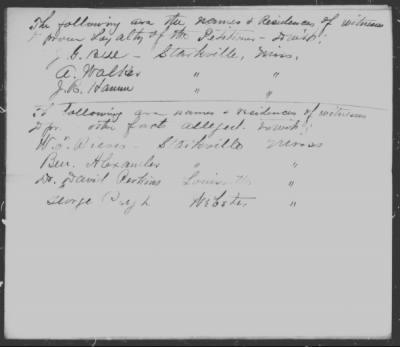 The following are the names & Residences of witnesses
to prove Loyalty of the Petitioner - towit:
J. C. Bell - Starkville, Miss.
A. Walker " "
J. B. " "
The following are names & residences of witnesses
to pr. other facts alleged. towit:
W. Starkville Miss
Ben. Alexander " "
Dr. David Perkins "
George Webster "